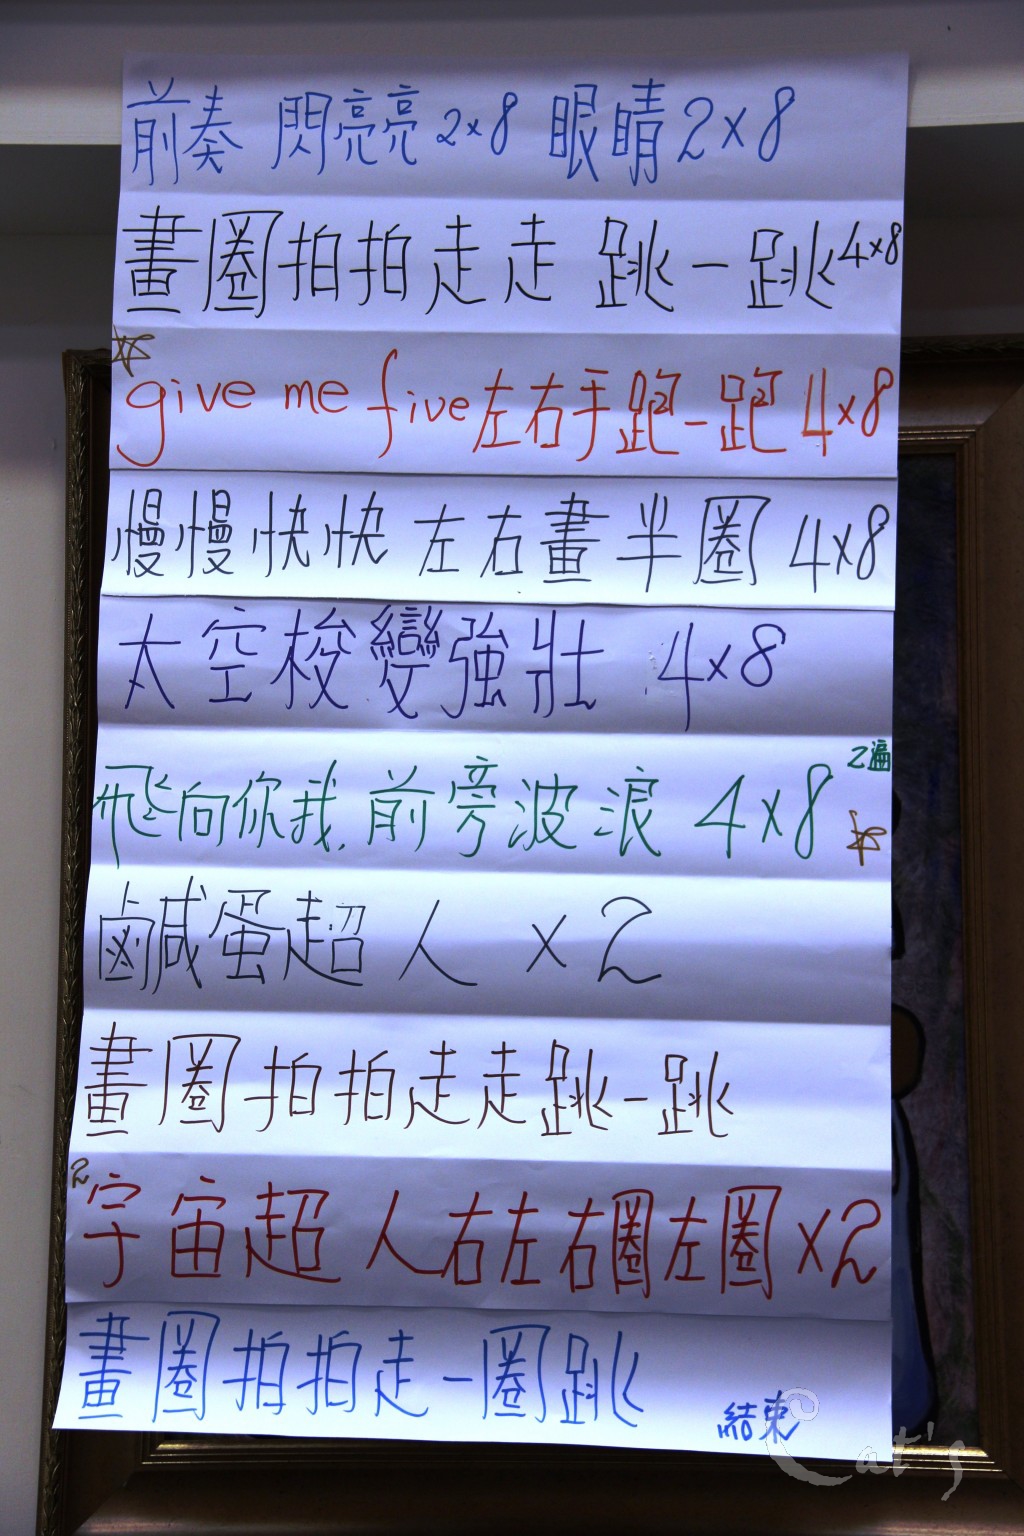 前奏 閃亮亮 2×8 眼睛 2×8
畫圈拍拍走走 跳一跳 4×8
☆ give me five 左右手跑一跑 4×8
慢慢快快 左右畫半圈 4×8
太空梭變強壯 4×8
飛向你我,前旁波浪 4×8 2遍 ☆
鹹蛋超人 ×2
畫圈拍拍走走跳一跳
2 宇宙超人右左右圈左圈 ×2
畫圈拍拍走一圈跳
結束
Cat's